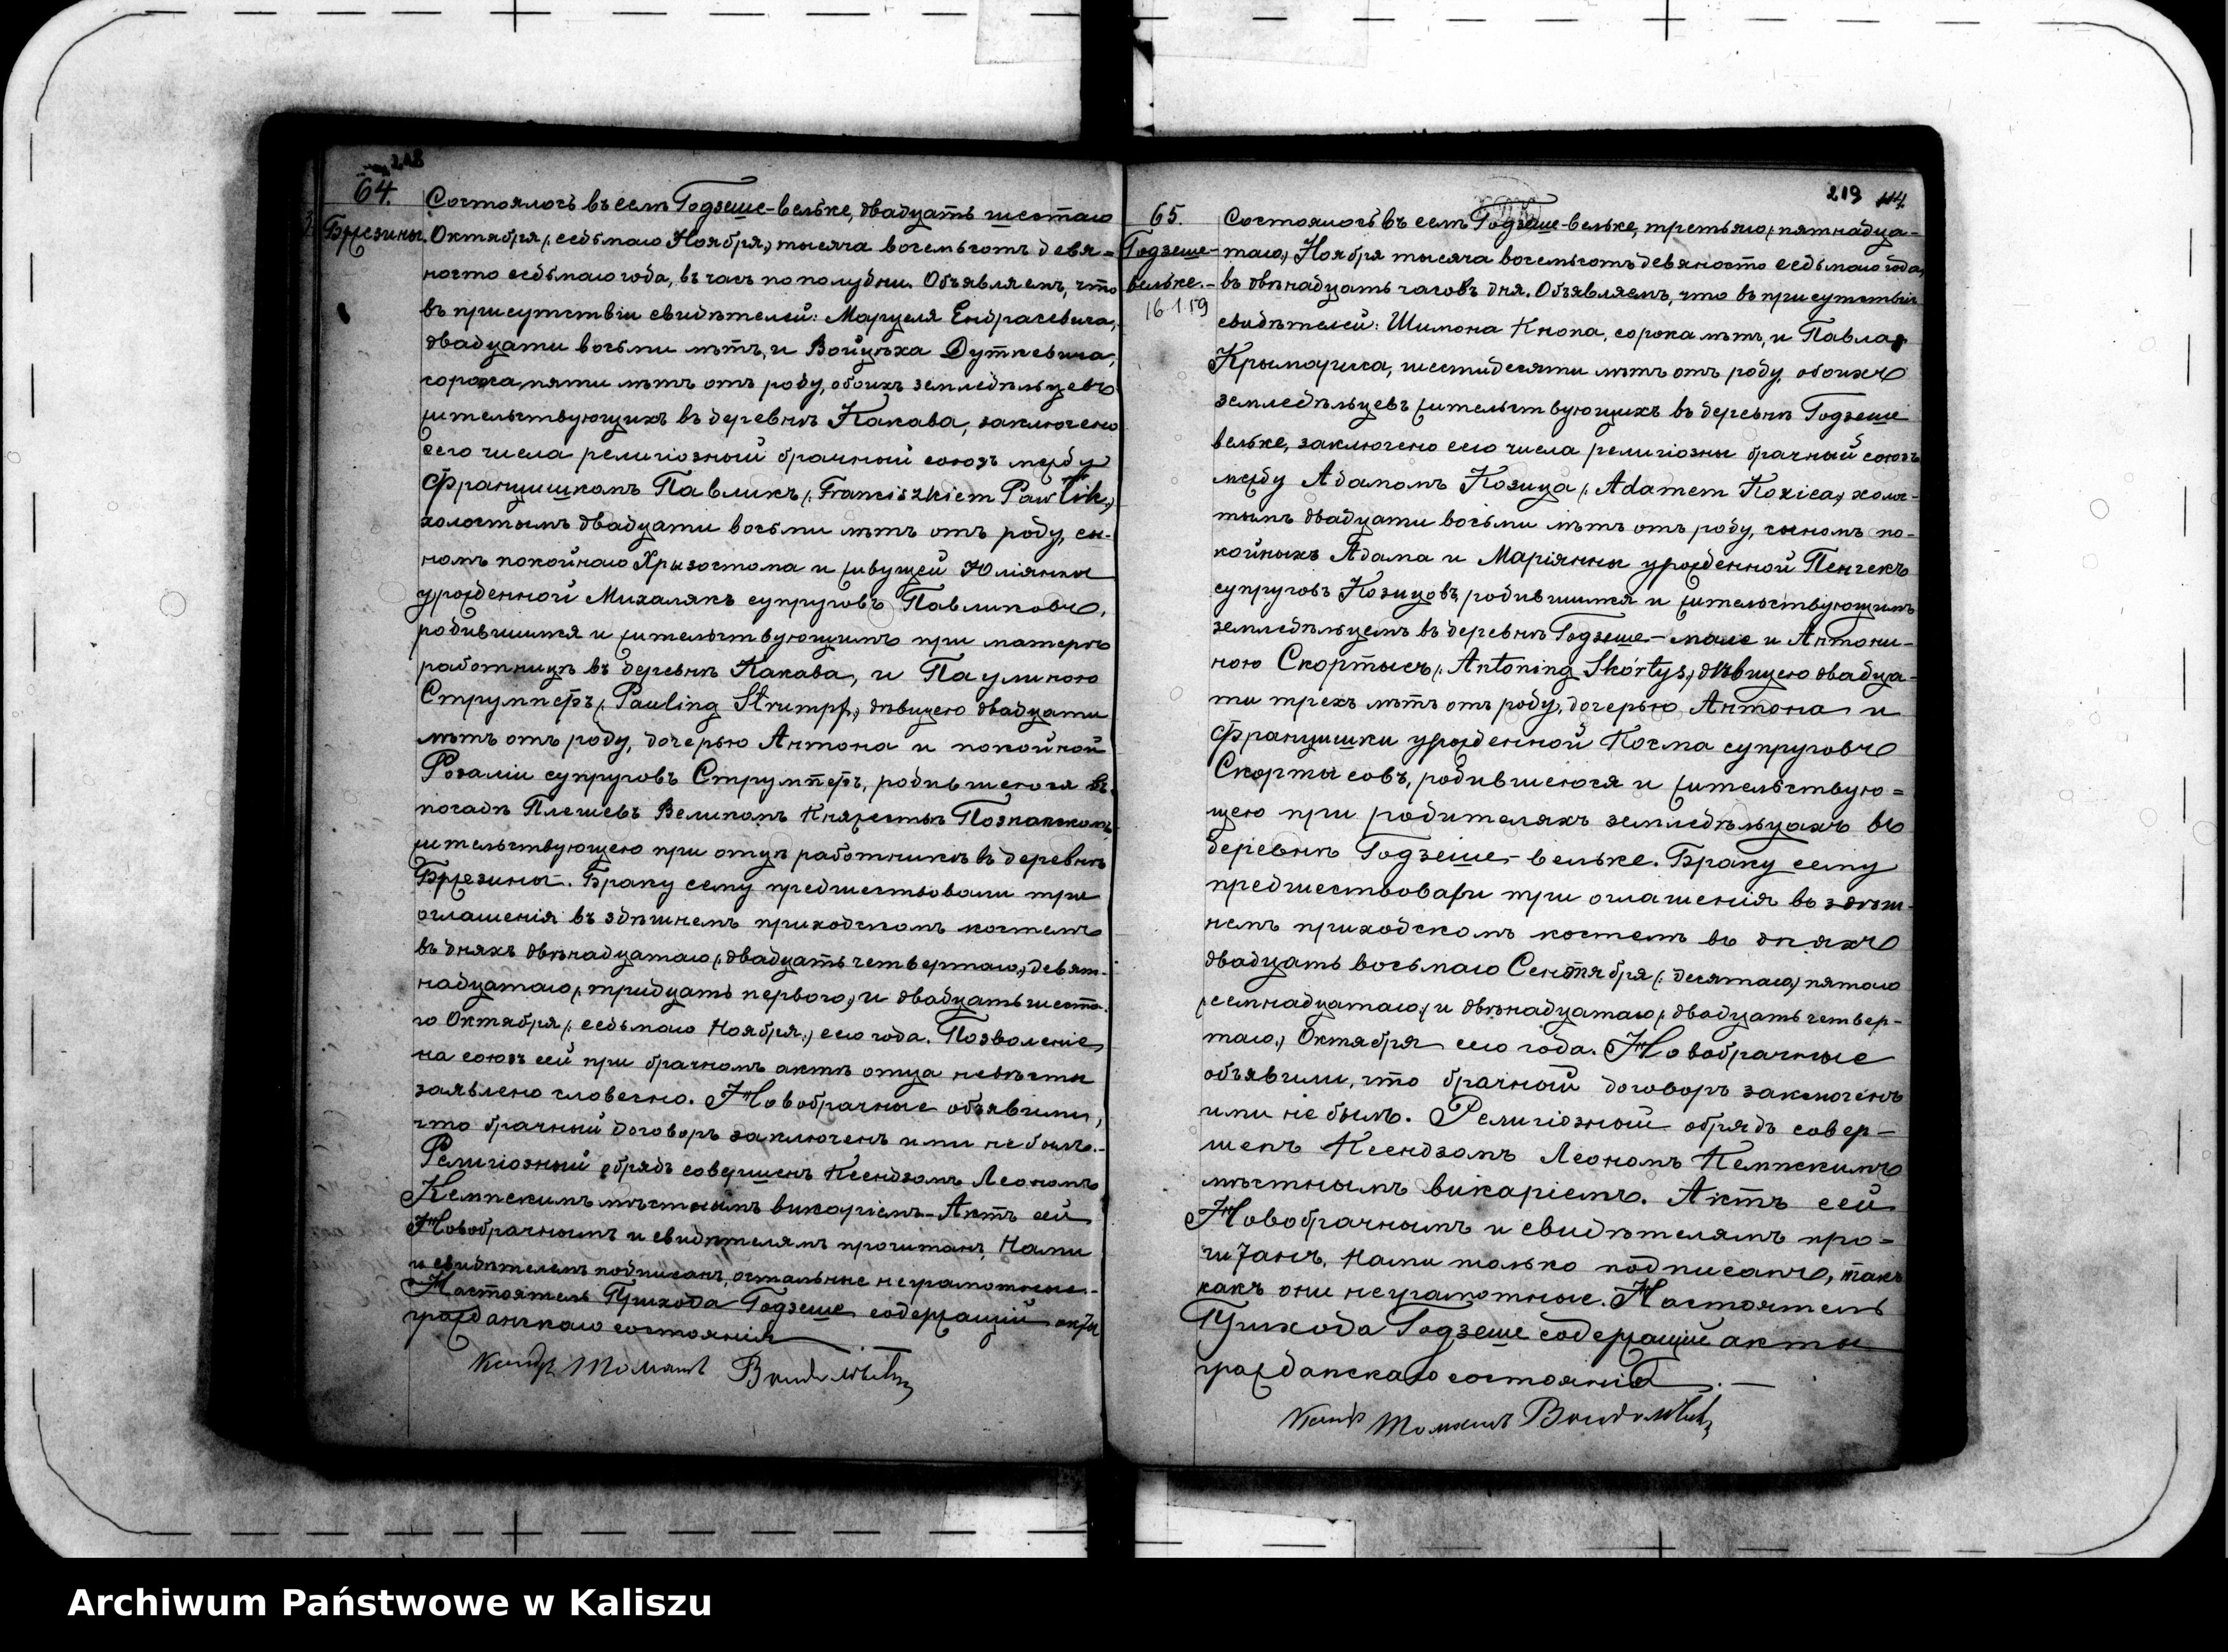 218
64.
Бржезины.
Состоялось въ селѣ Годзеше-вельке, двадцать шестаго
Октября (: седьмаго Ноября:) тысяча восемьсотъ девя=
носто седьмаго года, въ часъ по полудни. Объявляемъ, что
въ присутствіи свидѣтелей: Марцеля Ендрасевича,
двадцати восьми лѣтъ, и Войцѣха Дуткевича,
сорока пяти лѣтъ отъ роду, обоихъ земледѣльцевъ
жительствующихъ въ деревнѣ Какава, заключено
сего числа религіозный брачный союзъ между
Францишкомъ Павликъ (: Franciszkiem Pawlik :)
холостымъ двадцати восьми лѣтъ отъ роду, сы-
номъ покойнаго Хрызостома и живущей Юліянны
урожденной Михалякъ супруговъ Павликовъ,
родившимся и жительствующимъ при матери
работницѣ въ деревнѣ Какава, и Паулиною
Струмпфъ (: Pauliną Strumpf :) дѣвицею двадцати
лѣтъ отъ роду, дочерью Антона и покойной
Розаліи супруговъ Струмпфъ, родившеюся въ
посадѣ Плешевъ Великомъ Княжествѣ Познанскомъ
жительствующею при отцѣ работникѣ въ деревнѣ
Бржезины. Браку сему предшествовали три
оглашенія въ здѣшнемъ приходскомъ костелѣ
въ дняхъ двѣнадцатаго (: двадцать четвертаго :) девят-
надцатаго (: тридцать перваго :) и двадцать шеста-
го Октября (: седьмаго Ноября :) сего года. Позволеніе
на союзъ сей при брачномъ актѣ отца невѣсты
заявлено словесно. Новобрачные объявили,
что брачный договоръ заключенъ ими не былъ.-
Религіозный обрядъ совершенъ Ксендзомъ Леономъ
Кемпскимъ мѣстнымъ викаріемъ - Актъ сей
Новобрачнымъ и свидѣтелямъ прочитанъ, Нами
и свидѣтелемъ подписанъ, остальные неграмотные.-
Настоятель Прихода Годзеше содержащій акты
гражданскаго состоянія
219 114
65.
Годзеше-
вельке.-
16.1.59
Состоялось въ селѣ Годзеше-вельке, третьяго (: пятнадца-
таго :) Ноября тысяча восемьсотъ девяносто седьмаго года,
въ двѣнадцать часовъ дня. Объявляемъ, что въ присутствіи
свидѣтелей: Шимона Кнопа, сорока лѣтъ, и Павла
Крымариса, шестидесяти лѣтъ отъ роду, обоихъ
земледѣльцевъ жительствующихъ въ деревнѣ Годзеше
вельке, заключено сего числа религіозны брачный союзъ
между Адамомъ Козица (: Adamem Kozica :) холос-
тымъ двадцати восьми лѣтъ отъ роду, сыномъ по-
койныхъ Адама и Маріянны урожденной Пенчекъ
супруговъ Козицовъ, родившимся и жительствующимъ
земледѣльцемъ въ деревнѣ Годзеше-мале и Антони-
ною Скортысъ (: Antoniną Skórtys :) дѣвицею двадца-
ти трехъ лѣтъ отъ роду, дочерью Антона и
Францишки урожденной Косма супруговъ
Скортысовъ, родившеюся и жительствую=
щею при родителяхъ земледѣльцахъ въ
деревнѣ Годзеше-вельке. Браку сему
предшествовали три оглашенія въ здѣш-
немъ приходскомъ костелѣ въ дняхъ
двадцать восьмаго Сентября (: десятаго :) пятаго
(: семнадцатаго :) и двѣнадцатаго (: двадцать четвер-
таго :) Октября сего года. Новобрачные
объявили, что брачный договоръ заключенъ
ими не былъ. Религіозный обрядъ совер-
шенъ Ксендзомъ Леономъ Кемпскимъ
мѣстнымъ викаріемъ. Актъ сей
Новобрачнымъ и свидѣтелямъ про=
читанъ, Нами только подписанъ, такъ
какъ они неграмотные. Настоятель
Прихода Годзеше содержащій акты
гражданскаго состоянія. —
Archiwum Państwowe w Kaliszu